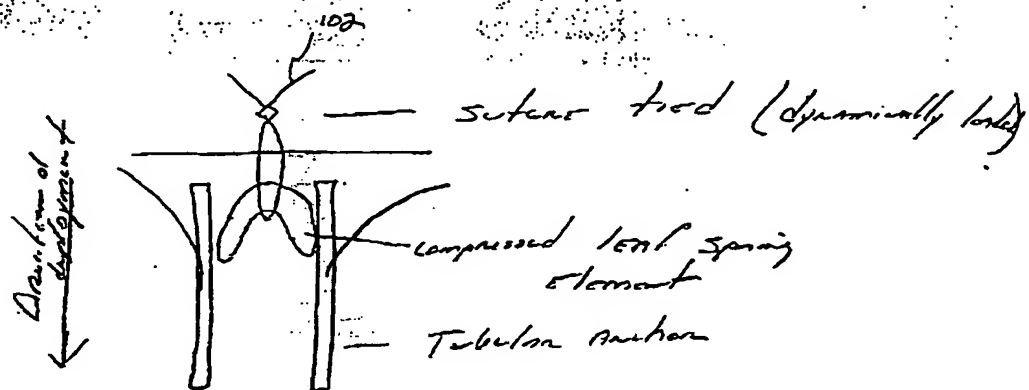 102
Suture tied (dynamically loaded)
Direction of
deployment
compressed leaf spring
Element
Tubular Anchor